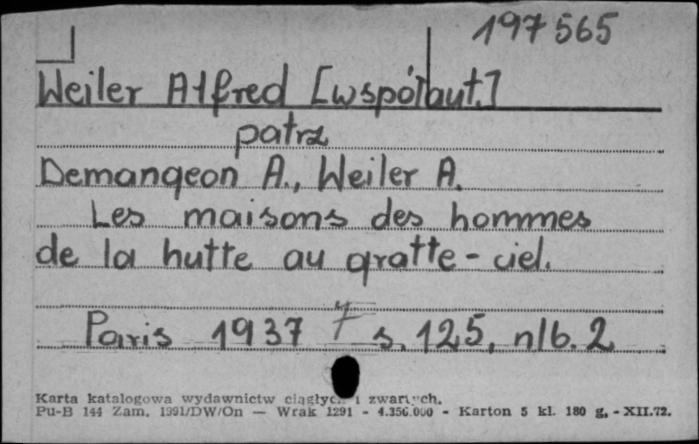 197565
Weiler Alfred [współaut.]
patrz
Demangeon A., Weiler A.
Les maisons des hommes
de la hutte au gratte-ciel.
Paris 1937 s. 125, nlb. 2
Karta katalogowa wydawnictw ciągłych i zwartych.
Pu-B 144 Zam. 1991/DW/On — Wrak 1291 - 4.356.000 - Karton 5 kl. 180 g. - XII.72.